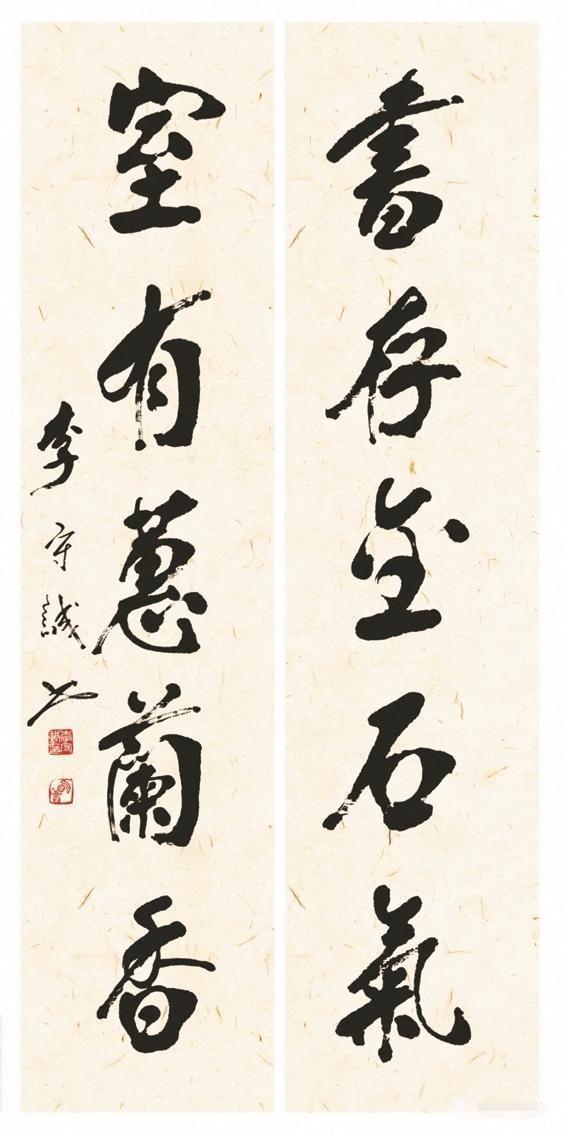 書存金石氣
室有蕙蘭香
李守誠